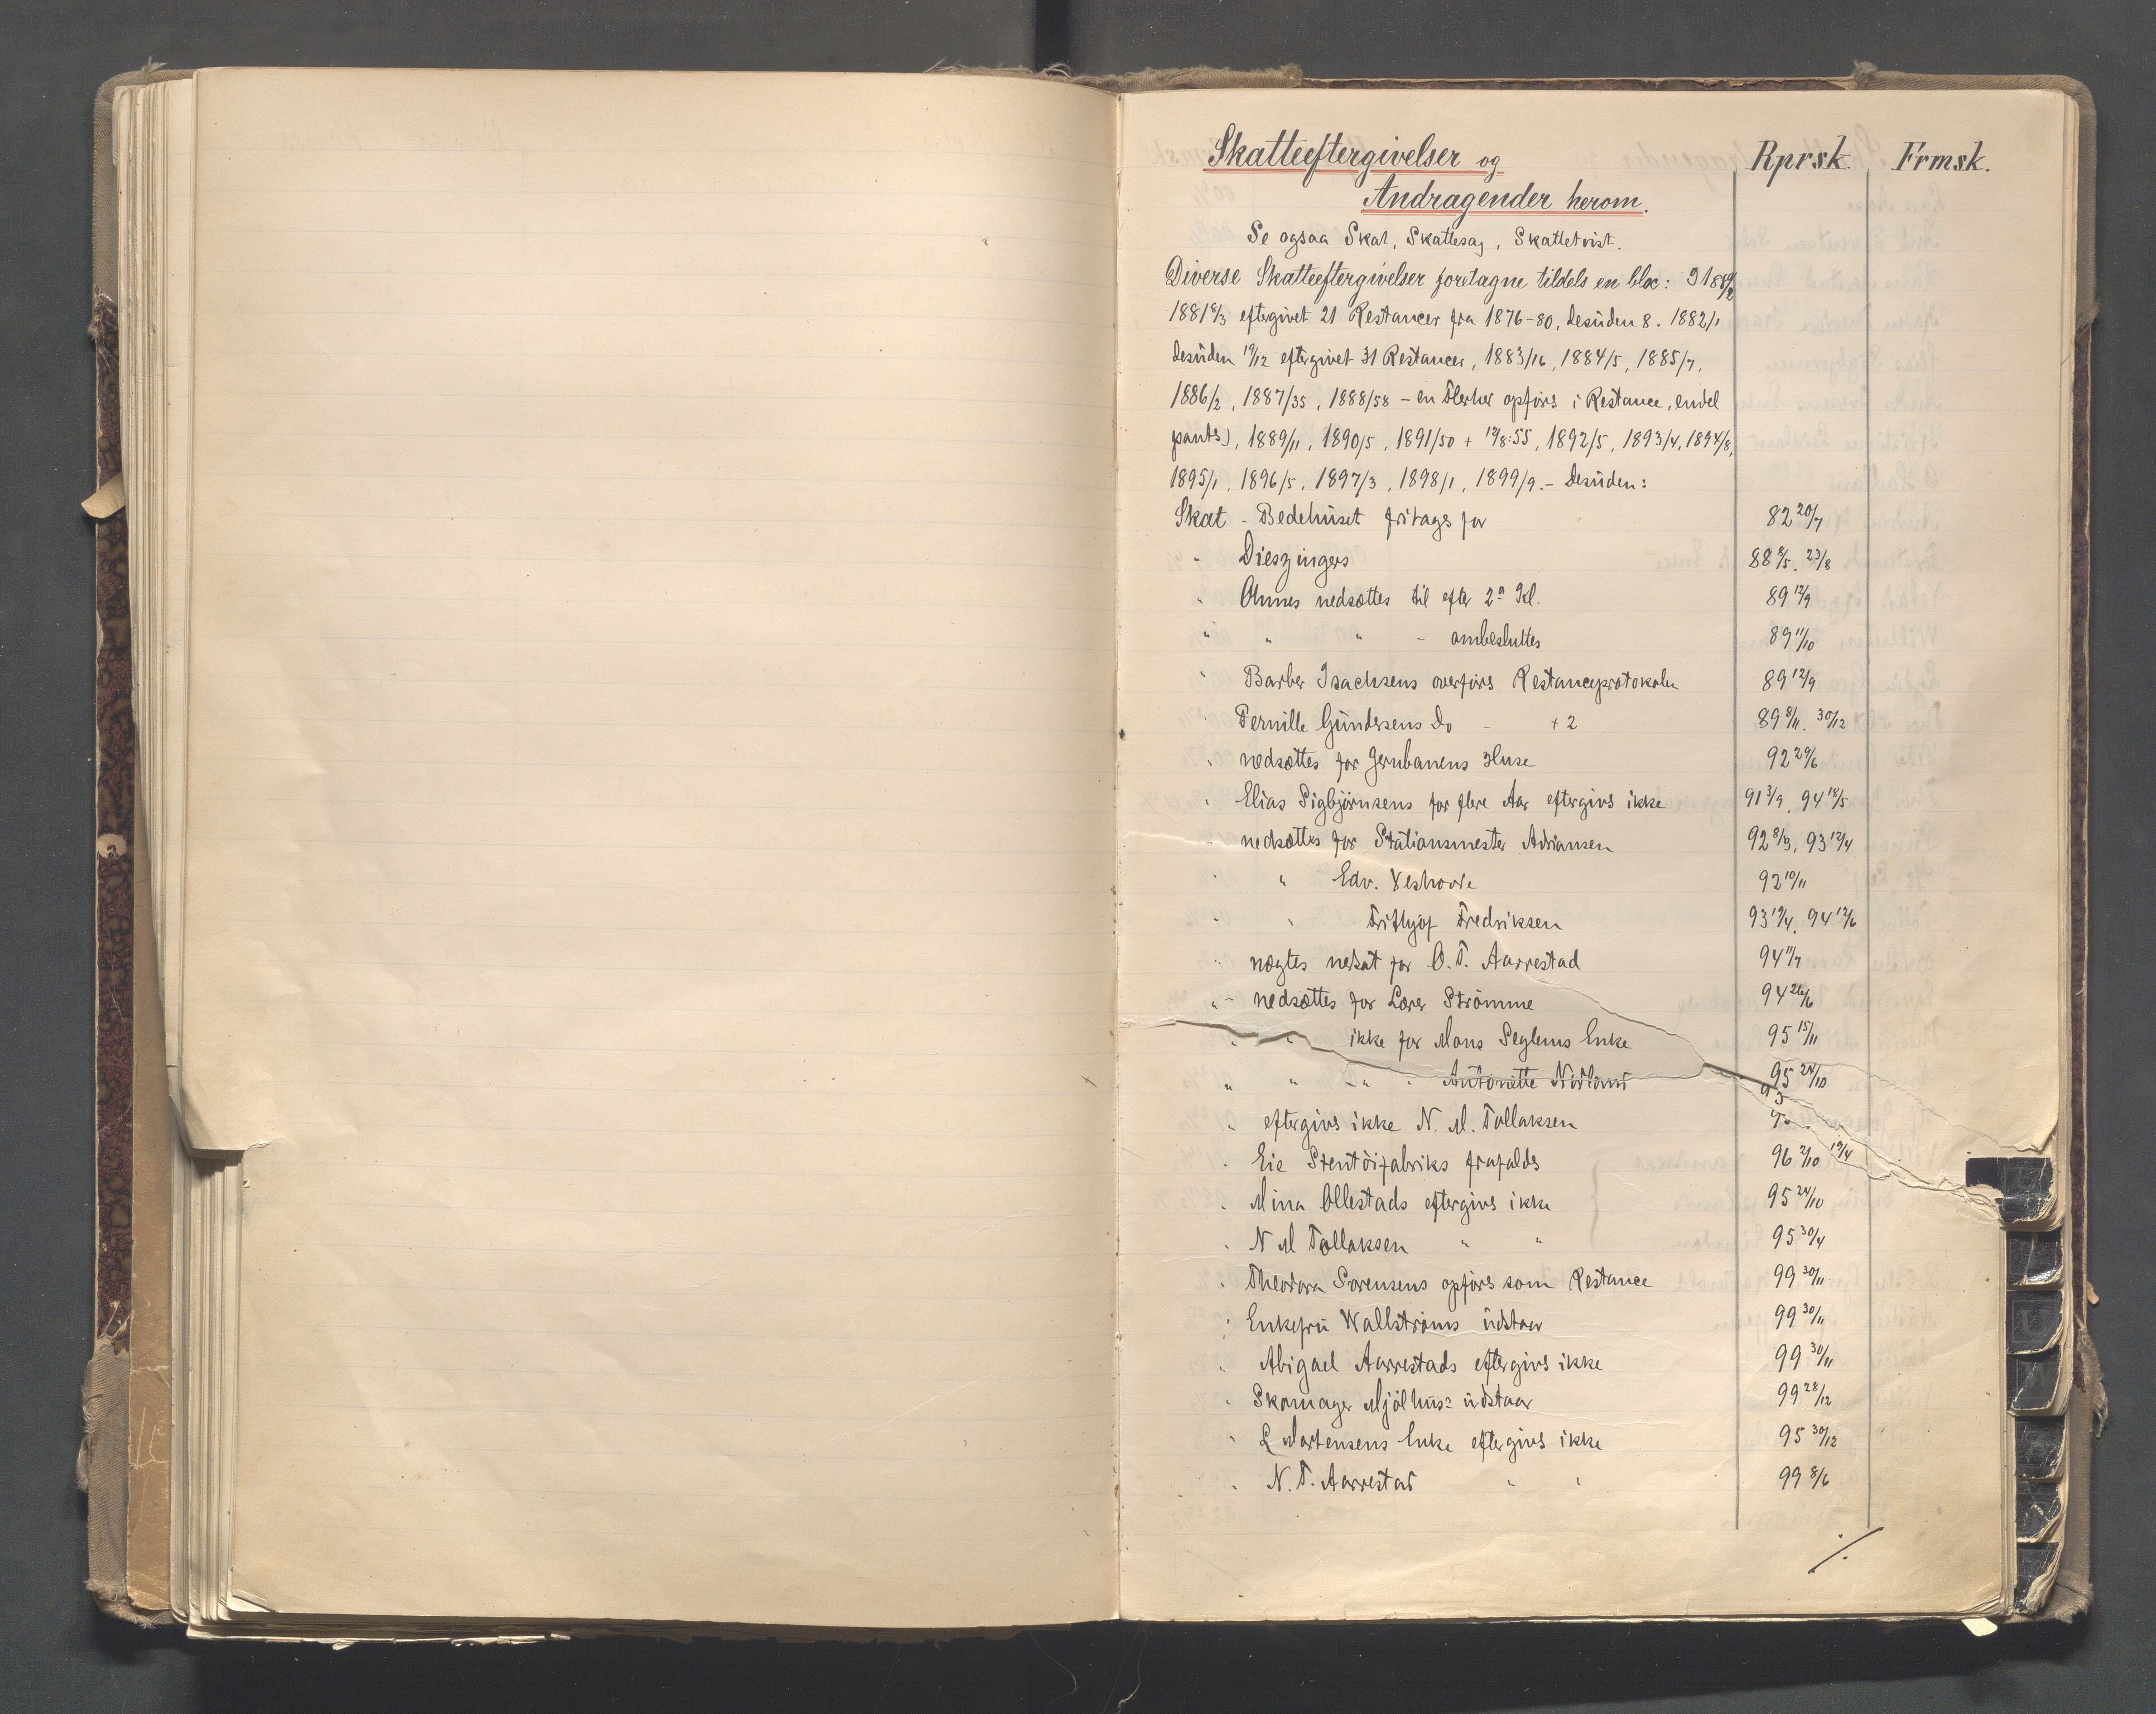 Skatteeftergivelser og Rprsk. Frmsk.
Andragender herom.
Se ogsaa Skat, Skattesag, Skattetvist.
Diverse Skatteeftergivelser foretagne tildels en bloc:
1881 8/3 eftergivet 21 Restancer fra 1876-80, desüden 8. 1882/1
desüden 19/12 eftergivet 31 Restancer, 1883/16, 1884/5, 1885/7,
1886/2, 1887/35, 1888/58 - en Flerhet opförs i Restance, endel
pants), 1889/11, 1890/5, 1891/50 + 12/8: 55, 1892/5, 1893/4, 1894/8,
1895/1, 1896/5, 1897/3, 1898/1, 1899/9. - Desüden:
Skat - Bedehüset fritages for 82 20/7
" Dieszingers 88 8/5. 23/8
" Ohmes nedsættes til efter 2n Kl. 89 12/9
" " " - ombesluttes 89 11/10
" Barber Isachsens overförs Restanceprotokolen 89 12/9
Pernille Gündersens Do - + 2 89 8/11. 30/12
" nedsættes for Jernbanens Huse 92 29/6
" Elias Sigbjörnsens for flere Aar eftergivs ikke 91 3/9. 94 18/5
" nedsættes for Stationsmester Adriansen 92 8/3, 93 12/4
" " Edv. Veshovde 92 10/11
" " Frithjof Fredriksen 93 19/4. 94 12/6
" nægtes nedsat for O. T. Aarrestad 94 11/7
" - nedsættes for Lærer Strömme 94 26/6
" " ikke for Mons Seglems Enke 95 15/11
" " - " " Antonette Nodland 95 24/10
" eftergivs ikke N. M. Tollaksen
" Eie Stentöifabriks frafalds 96 2/10 19/4
" Mina Ollestads eftergivs ikke 95 24/10
" N M Tollaksen " " 95 30/4
" Theodora Sorensens opförs som Restance 99 30/11
" Enkefrü Wallströms üdstaar 99 30/11
" Abigael Aarrestads eftergivs ikke 99 30/11
" Skomager Mjölhüs: üdstaar 99 28/12
" L Mortensens Enke eftergivs ikke 95 30/12
" N. T. Aarrestad " " 99 8/6
./.